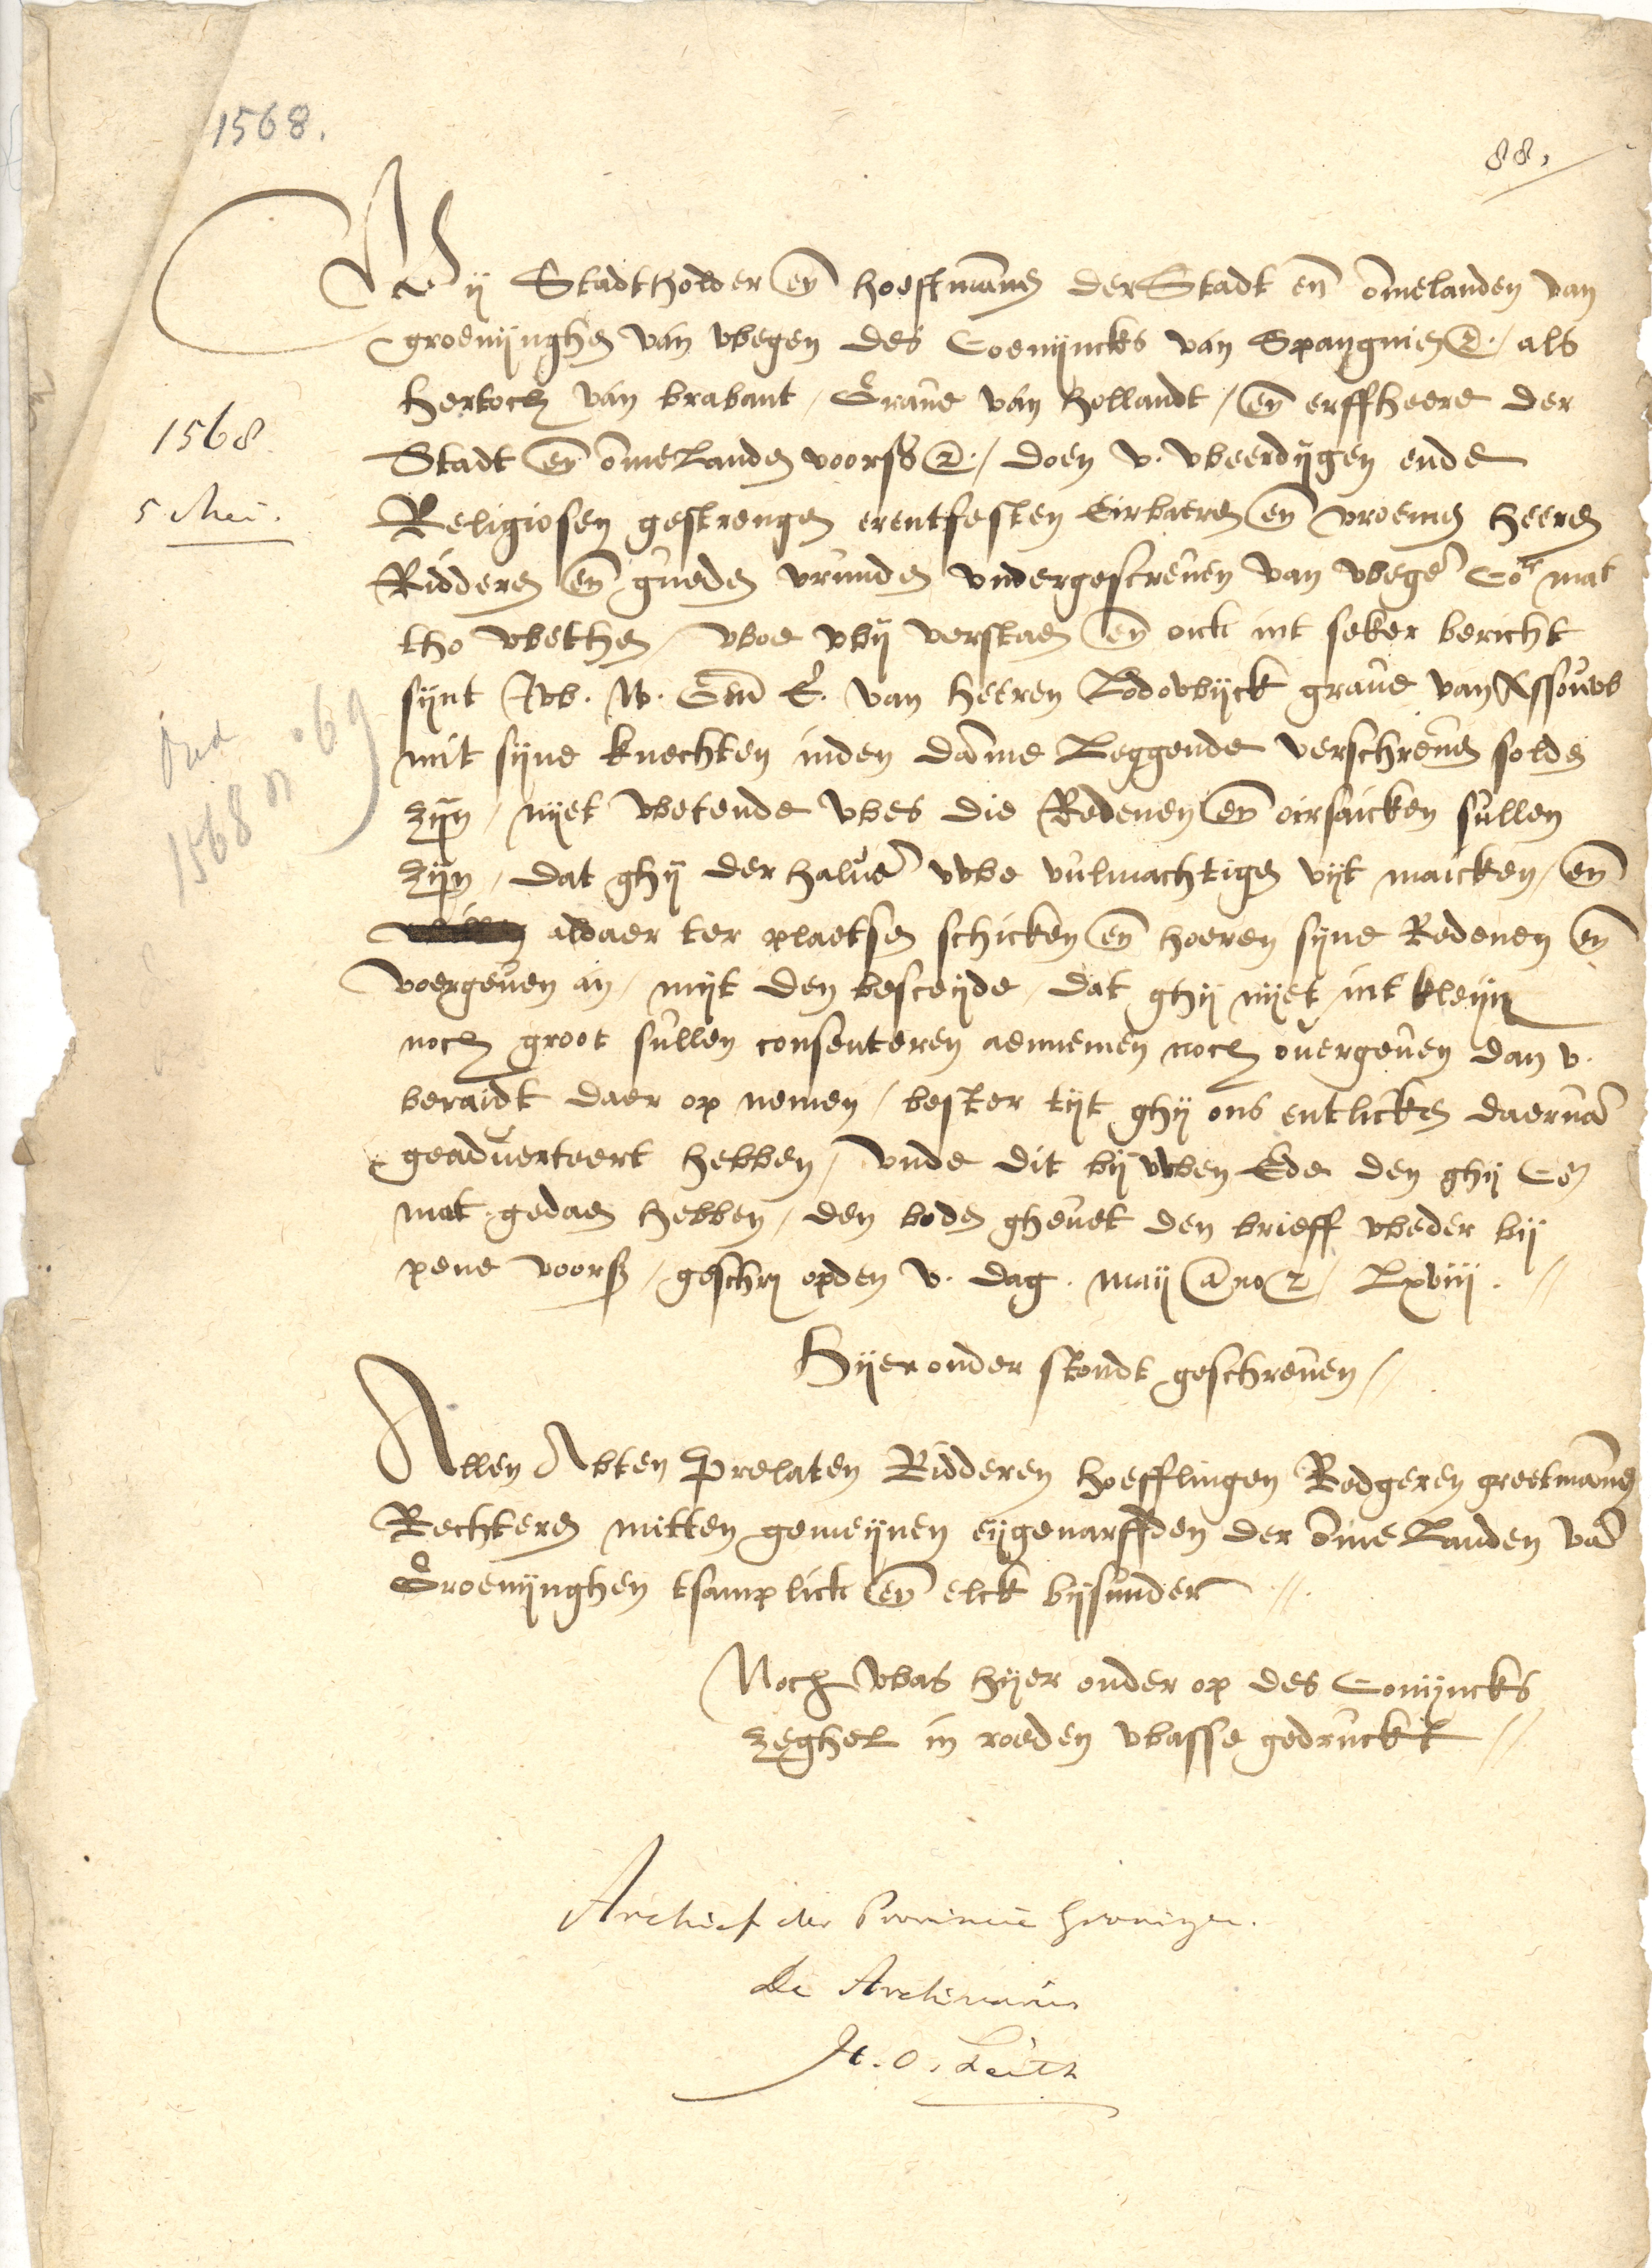 1568.
88.
Wij Stadtholder en̄ hoeftman̄en der Stadt en̄ om̄elanden van
groenijnghen van wegen des Coenijncks van Spangnien &c. / als
hertoch van brabant / Graue van hollandt / en̄ erffheere der
1568.
Stadt en̄ om̄elanden voorss &c. / doen v. weerdijgen ende
5 Mei.
Religiosen gestrengen erentfesten Eirbaeren en̄ vroemen heeren
Ridderen en̄ gueden vrunden vndergescreuen van wegen Co. mat
tho wethen / woe wij verstaen en̄ oick int seker bericht
sijnt Jw. W. E. van heeren Lodowijck graue van Assouw
mit sijne knechten inden dam̄me Leggende verschreuen solden
zijn / nijet wetende wes die Redenen en̄ oirsaicken sullen
Oud
1568 n° 69
zijn / dat ghij derhaluen uwe vulmachtigen uijt maicken / en̄
aldaer ter plaetsen schicken en̄ hoeren sijne Redenen en̄
voergeuen an / mijt den besceijde / dat ghij nijet int kleijn
noch groot sullen consenteren aennemen noch ouergeuen dan v.
beraidt daer op nemen / bester tijt ghij ons entlicken daervan
geaduerteert hebben / vnde dit bij uwen Ede den ghij Co.
mat. gedaen hebben / den boden gheuet den brieff weder bij
pene voorss / geschr opden v. dag. maij a no &c / Lxviij. //
Hijer onder stondt geschreuen /
Allen Abten Prelaten Ridderen hoefflingen Redgeren greetman̄en
Rechteren mitten gemeijnen eijgenarffden der om̄e Landen van
Groenijnghen tsamplick en̄ elck bijsunder //.
Noch was hijer onder op des Conijncks
zeghel in roeden wasse gedruckt //
Archief der Provincie Groningen.
De Archivaris
H. O. Feith